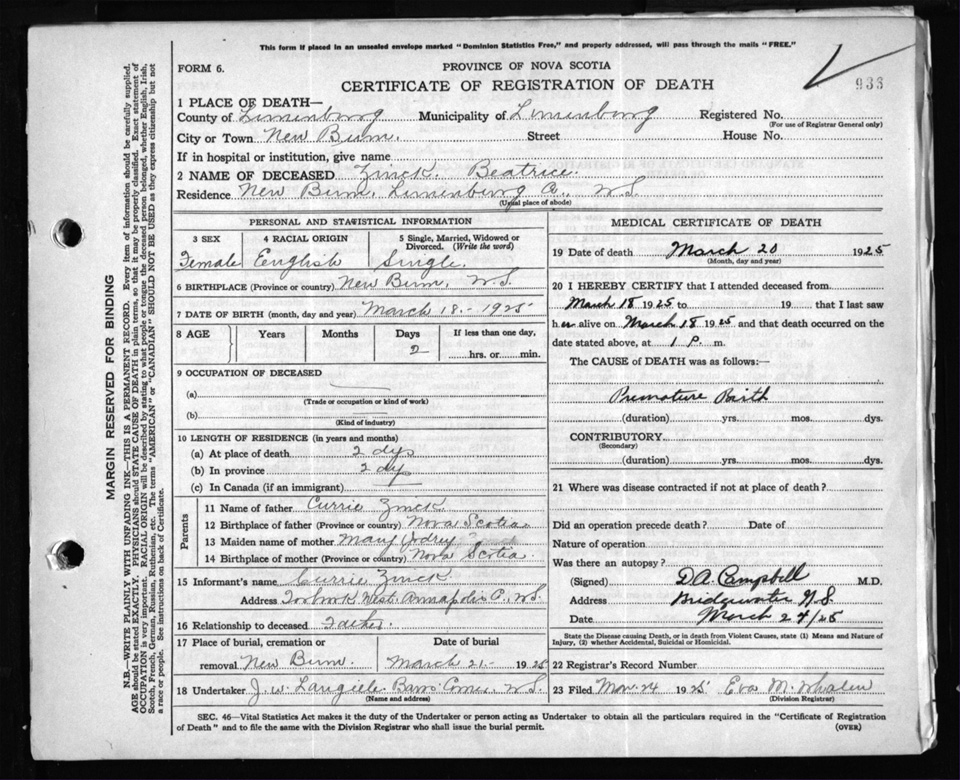 This form if placed in an unsealed envelope marked "Dominion Statistics Free," and properly addressed, will pass through the mails "FREE."
FORM 6.
PROVINCE OF NOVA SCOTIA
CERTIFICATE OF REGISTRATION OF DEATH
936
1 PLACE OF DEATH—
County of Lunenburg Municipality of Lunenburg Registered No.
(For use of Registrar General only)
City or Town New Burn. Street House No.
If in hospital or institution, give name
2 NAME OF DECEASED Zinck. Beatrice.
Residence New Burn. Lunenburg Co. N.S.
(Usual place of abode)
PERSONAL AND STATISTICAL INFORMATION
3 SEX 4 RACIAL ORIGIN 5 Single, Married, Widowed or Divorced. (Write the word)
Female English Single.
6 BIRTHPLACE (Province or country) New Burn, N.S.
7 DATE OF BIRTH (month, day and year) March 18 - 1925
8 AGE Years Months Days If less than one day,
2 hrs. or min.
9 OCCUPATION OF DECEASED
(a)
(Trade or occupation or kind of work)
(b)
(Kind of industry)
10 LENGTH OF RESIDENCE (in years and months)
(a) At place of death 2 dys
(b) In province 2 dys
(c) In Canada (if an immigrant)
Parents
11 Name of father Currie Zinck
12 Birthplace of father (Province or country) Nova Scotia
13 Maiden name of mother Mary Jodrey
14 Birthplace of mother (Province or country) Nova Scotia.
15 Informant's name Currie Zinck.
Address Torbrook West. Annapolis Co., N.S.
16 Relationship to deceased Father.
17 Place of burial, cremation or removal New Burn. Date of burial March 21 - 1925
18 Undertaker J. W. Langille. Barss Corner, N.S.
(Name and address)
MEDICAL CERTIFICATE OF DEATH
19 Date of death March 20 1925
(Month, day and year)
20 I HEREBY CERTIFY that I attended deceased from
March 18 1925 to 19 that I last saw
her alive on March 18 1925 and that death occurred on the
date stated above, at 1 P. m.
The CAUSE of DEATH was as follows:—
Premature Birth
(duration) yrs. mos. dys.
CONTRIBUTORY
(Secondary)
(duration) yrs. mos. dys.
21 Where was disease contracted if not at place of death?
Did an operation precede death? Date of
Nature of operation
Was there an autopsy?
(Signed) D.A. Campbell M.D.
Address Bridgewater N.S.
Date March 24/25
State the Disease causing Death, or in death from Violent Causes, state (1) Means and Nature of
Injury, (2) whether Accidental, Suicidal or Homicidal.
22 Registrar's Record Number
23 Filed Mar. 24 1925 Eva M. Whalen
(Division Registrar)
SEC. 46—Vital Statistics Act makes it the duty of the Undertaker or person acting as Undertaker to obtain all the particulars required in the "Certificate of Registration
of Death" and to file the same with the Division Registrar who shall issue the burial permit. (OVER)
MARGIN RESERVED FOR BINDING
N.B.—WRITE PLAINLY WITH UNFADING INK—THIS IS A PERMANENT RECORD. Every item of information should be carefully supplied.
AGE should be stated EXACTLY. PHYSICIANS should STATE CAUSE OF DEATH in plain terms, so that it may be properly classified. Exact statement of
OCCUPATION is very important. RACIAL ORIGIN will be described by stating to what people or tongue the deceased person belonged, whether English, Irish,
Scotch, French, German, Russian, Ruthenian, etc. The terms "AMERICAN" or "CANADIAN" SHOULD NOT BE USED as they express citizenship but not
a race or people. See instructions on back of Certificate.